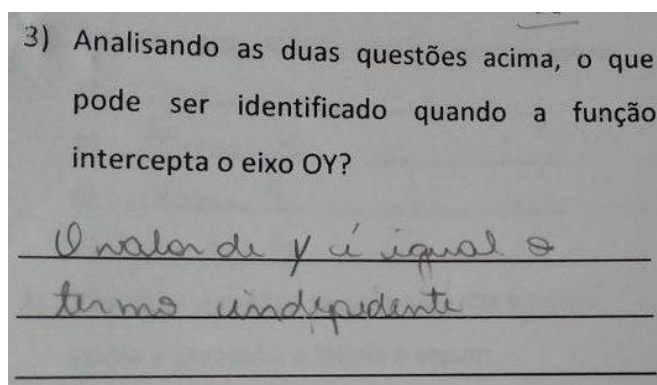 3) Analisando as duas questões acima, o que
pode ser identificado quando a função
intercepta o eixo OY?
O valor de y é igual o
termo indepedente